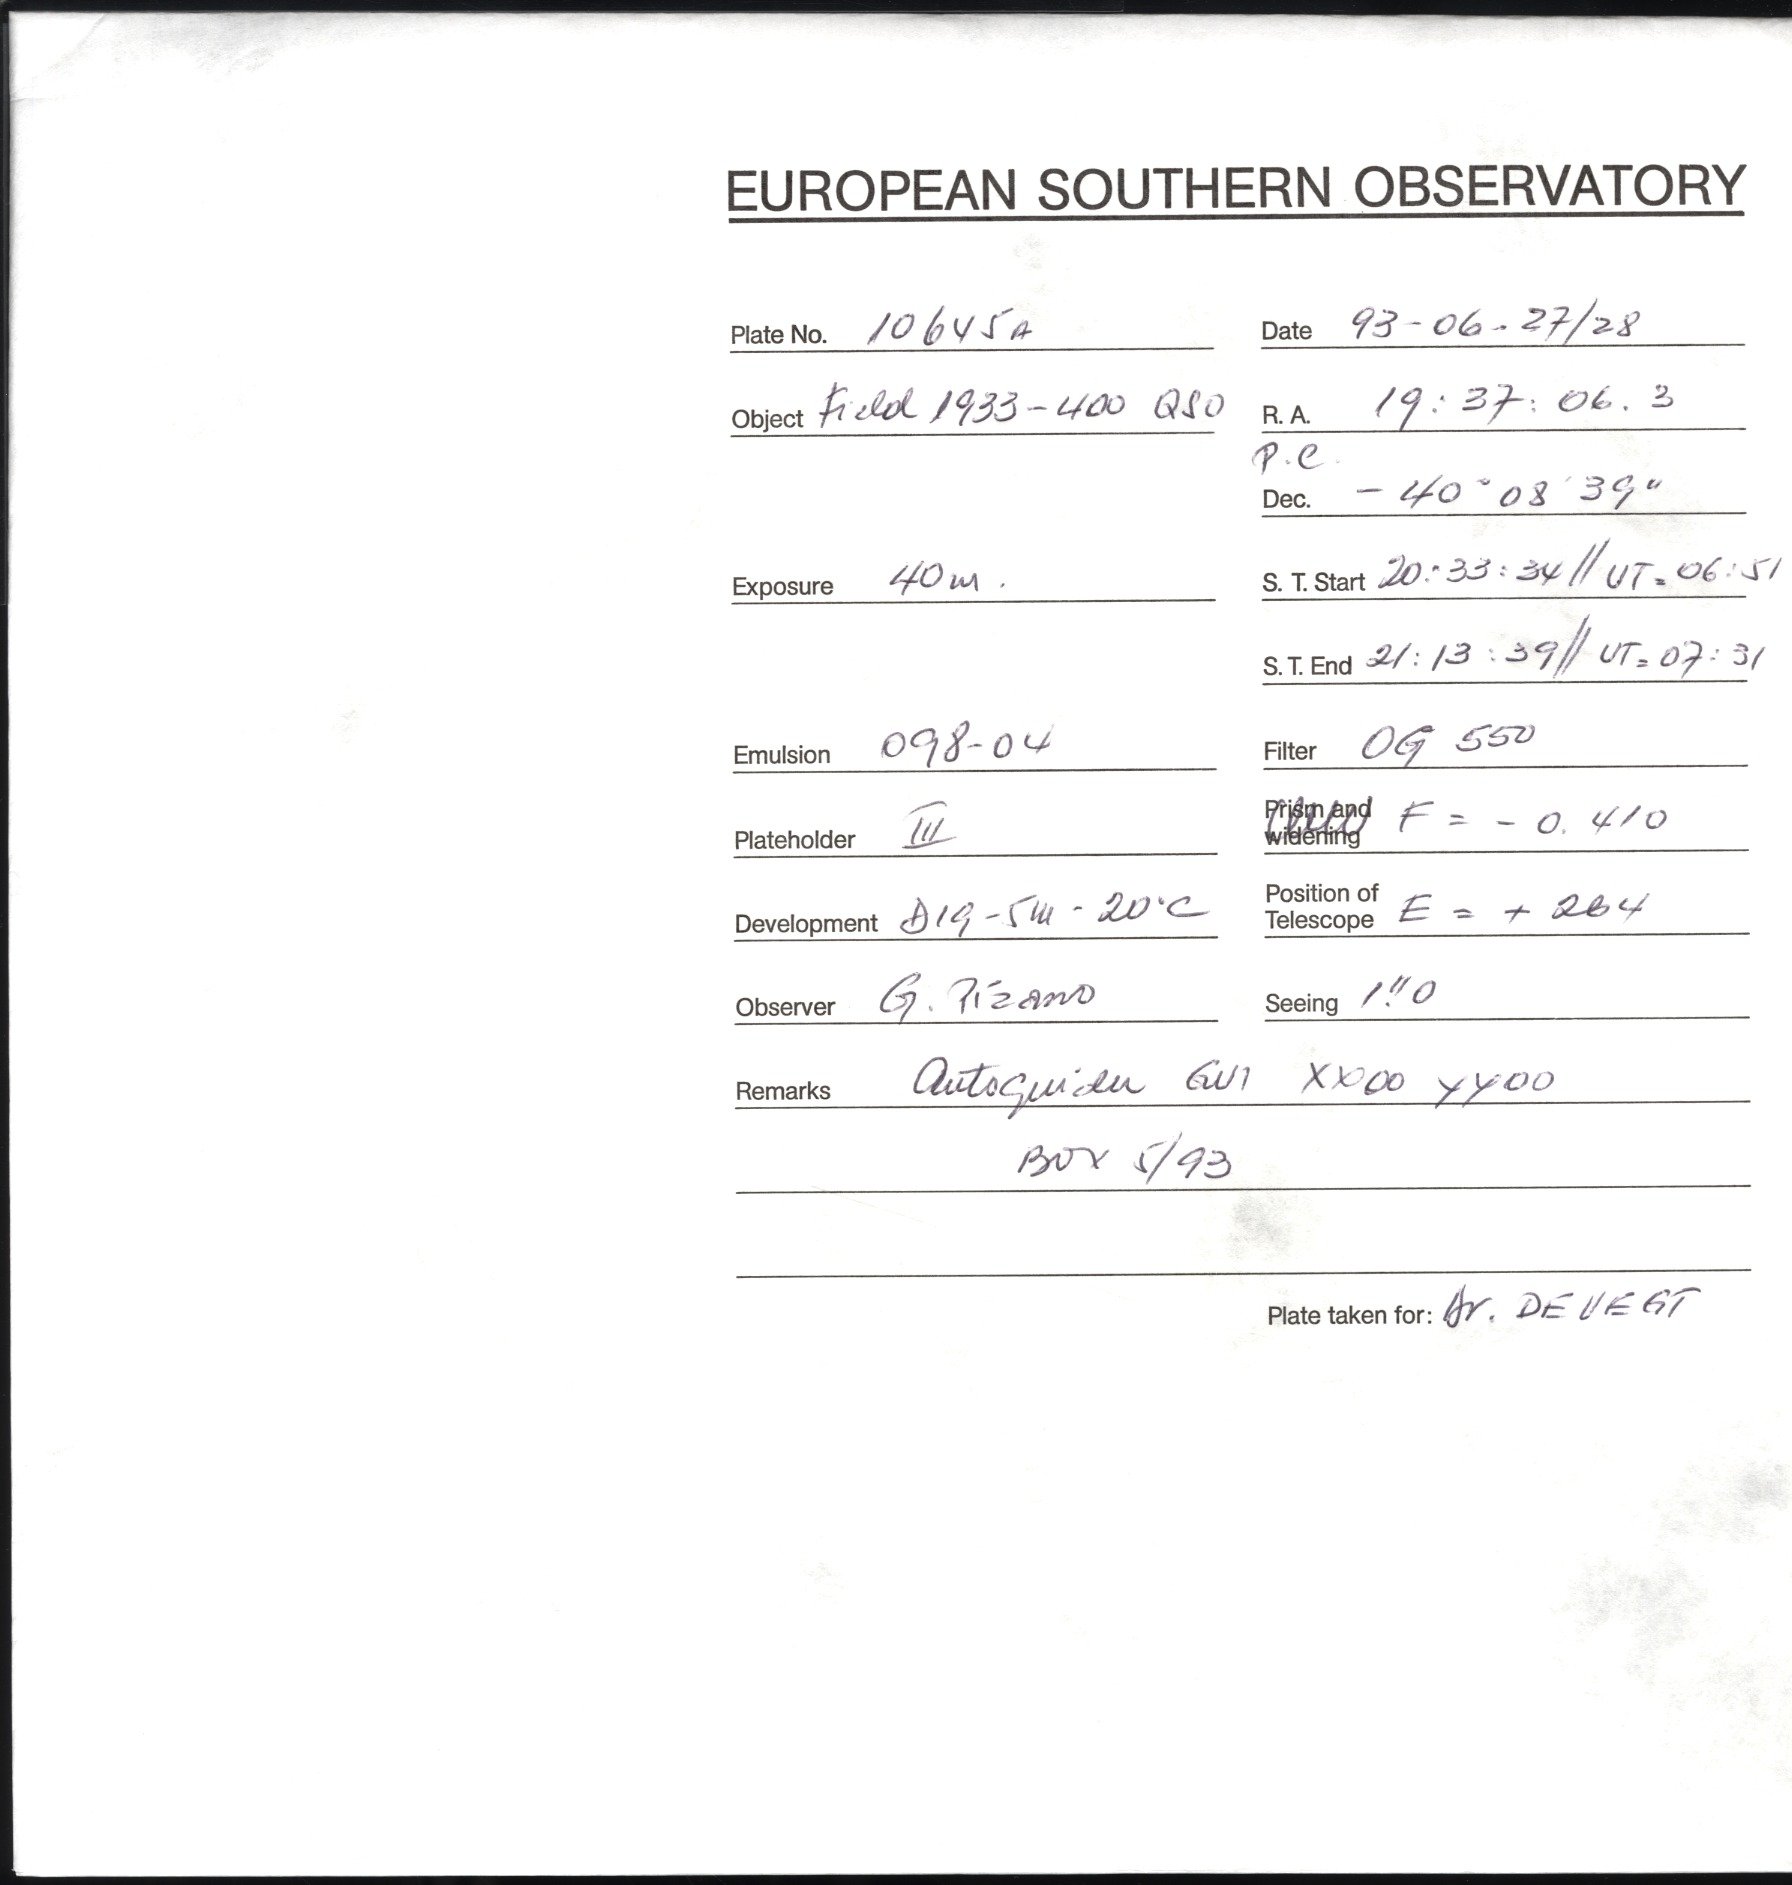 EUROPEAN SOUTHERN OBSERVATORY
Plate No. 10645A Date 93-06-27/28
Object Field 1933-400 QSO R. A. 19: 37: 06. 3
P.C.
Dec. - 40° 08' 39"
Exposure 40m. S. T. Start 20:33:34// UT= 06:51
S. T. End 21:13:39// UT= 07:31
Emulsion 098-04 Filter OG 550
Plateholder III Prism and widening F = - 0.410
Development D19-5m-20°C Position of Telescope E = + 264
Observer G. Pizano Seeing 1".0
Remarks Autoguider GU1 XX00 YY00
BOX 5/93
Plate taken for: Dr. DEVEGT